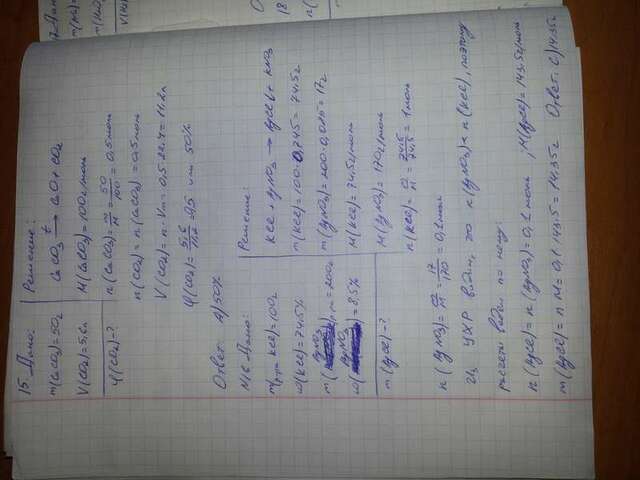 15. Дано:
m(CaCO3)=50г
V(CO2)=5,6л
φ(CO2)-?
Решение:
CaCO3 t→ CaO + CO2
M(CaCO3)=100г/моль
n(CaCO3)=m/M=50/100=0,5моль
n(CO2)=n(CaCO3)=0,5моль
V(CO2)=n·Vm=0,5·22,4=11,2л
φ(CO2)=5,6/11,2=0,5 или 50%
Ответ: А) 50%
N16 Дано:
m(р-ра KCl)=100г
ω(KCl)=74,5%
m(AgNO3)р-ра=200г
ω(AgNO3)=8,5%
m(AgCl)-?
Решение:
KCl + AgNO3 → AgCl↓ + KNO3
m(KCl)=100·0,745=74,5г
m(AgNO3)=200·0,085=17г
M(KCl)=74,5г/моль
M(AgNO3)=170г/моль
n(KCl)=m/M=74,5/74,5=1моль
n(AgNO3)=m/M=17/170=0,1моль
Из УХР видим, что n(AgNO3)<n(KCl), поэтому
расчеты ведем по нему:
n(AgCl)=n(AgNO3)=0,1моль ; M(AgCl)=143,5г/моль
m(AgCl)=n·M=0,1·143,5=14,35г Ответ: C) 14,35г
Дано
18